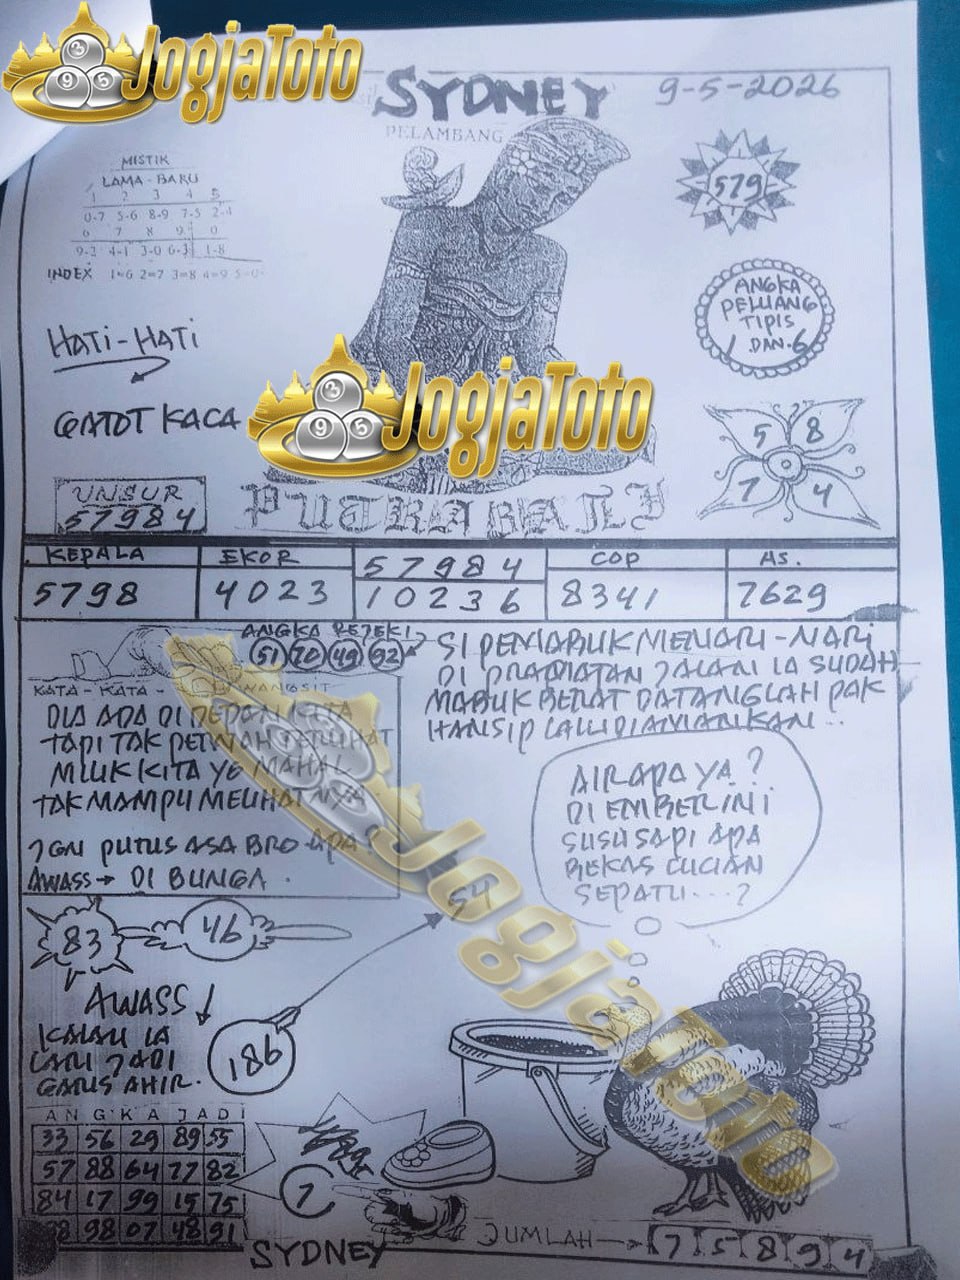 JogjaToto
SYDNEY
9-5-2026
PELAMBANG
MISTIK
LAMA - BARU
1 2 3 4 5
0-7 5-6 8-9 7-5 2-4
6 7 8 9 0
9-2 4-1 3-0 6-3 1-8
INDEX 1=6 2=7 3=8 4=9 5=0
579
ANGKA
PELUANG
TIPIS
1 DAN 6
HATI-HATI
GATOT KACA
JogjaToto
5 8
7 4
UNSUR
57984
PUTRA BALI
KEPALA EKOR 57984 COP AS.
5798 4023 10236 8341 7629
ANGKA REJEKI
51 70 49 92
SI PEMABUK MENARI-NARI
DI PRAPATAN JALAN IA SUDAH
MABUK BERAT DATANGLAH PAK
HANSIP LALU DIAMANKAN...
KATA - KATA - WANGSIT
DIA ADA DI DEPAN KITA
TAPI TAK PERNAH TERLIHAT
MILIK KITA YG MAHAL
TAK MAMPU MELIHATNYA
JGN PUTUS ASA BRO APA?
AWASS → DI BUNGA.
AIR APA YA?
DI EMBER INI
SUSU SAPI APA
BEKAS CUCIAN
SEPATU....?
JogjaToto
54
83 46
AWASS
KALAU IA
LARI JADI
GARIS AHIR.
186
ANGKA JADI
33 56 29 89 55
57 88 64 77 82
84 17 99 15 75
98 07 48 91
7
SYDNEY
JUMLAH → 7 5 8 9 4